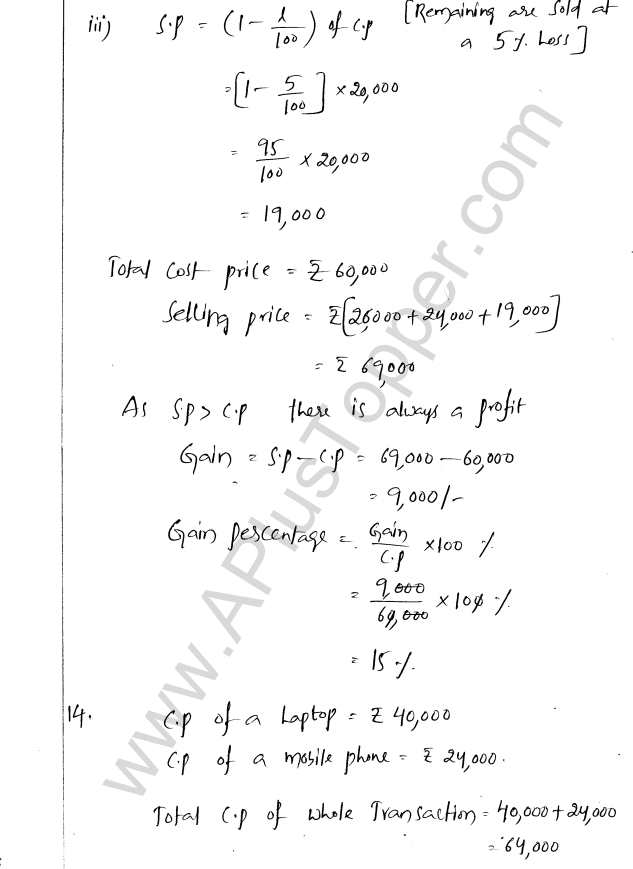 iii) S.P = (1 - l/100) of C.P [Remaining are sold at a 5% Loss]
= [1 - 5/100] × 20,000
= 95/100 × 20,000
= 19,000
Total cost price = ₹ 60,000
Selling price = ₹[26,000 + 24,000 + 19,000]
= ₹ 69,000
As S.P > C.P there is always a profit
Gain = S.P - C.P = 69,000 - 60,000
= 9,000/-
Gain percentage = Gain/C.P × 100 %
= 9,000/60,000 × 100 %
= 15 %.
14. C.P of a Laptop = ₹ 40,000
C.P of a mobile phone = ₹ 24,000.
Total C.P of whole Transaction = 40,000 + 24,000
= 64,000
www.APlusTopper.com